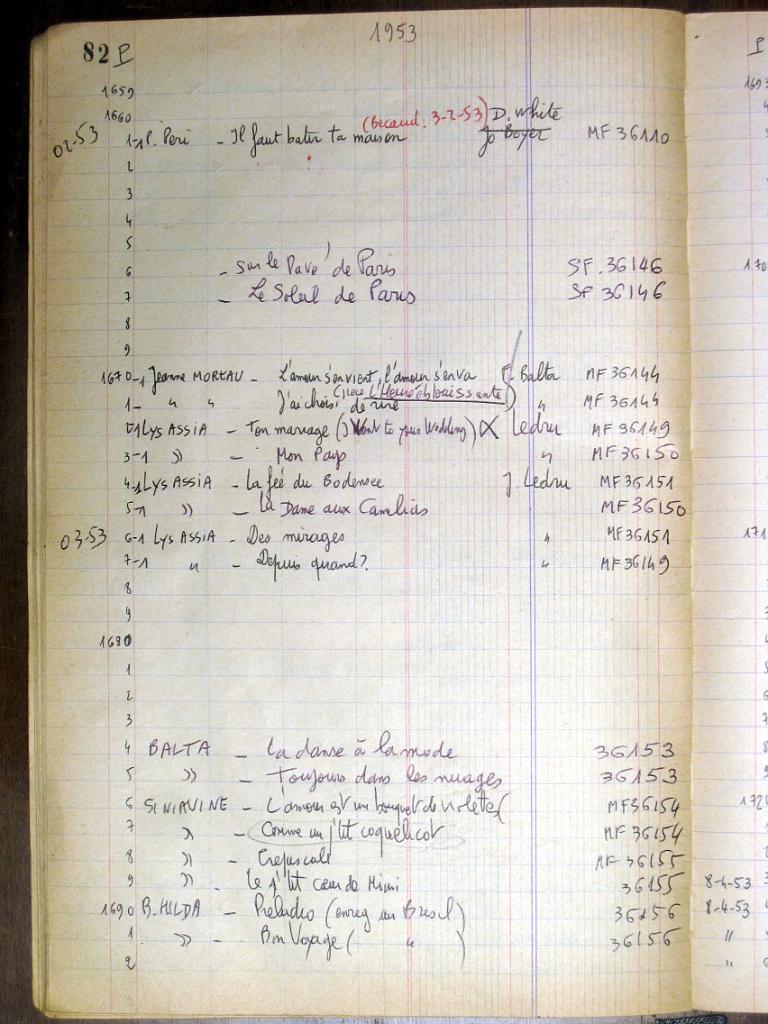 82 P 1953
1659
1660
02-53 1-1 P. Peri - Il faut bâtir ta maison (Becaud: 3-2-53) D. White Jo Boyer MF 36110
2
3
4
5
6 - Sur le Pavé de Paris SF. 36146
7 - Le Soleil de Paris SF 36146
8
9
1670-1 Jeanne MOREAU - L'amour s'en vient, l'amour s'en va F. Balta MF 36144
1- " " J'ai choisi de rire (pièce l'Heure éblouissante) " MF 36144
LYS ASSIA - Ton mariage (I Went to your Wedding) Ledru MF 36149
3-1 » - Mon Pays " MF 36150
4-1 LYS ASSIA - La fée du Bodensee J. Ledru MF 36151
5-1 » - La Dame aux Camélias MF 36150
03-53 6-1 LYS ASSIA - Des mirages " MF 36151
7-1 " - Depuis quand? " MF 36149
8
9
1680
1
2
3
4 BALTA - La danse à la mode 36153
5 » - Toujours dans les nuages 36153
6 SINIAVINE - L'amour est un bouquet de violettes MF 36154
7 » - Comme un p'tit coquelicot MF 36154
8 » - Crépuscule MF 36155
9 » - Le p'tit cœur de Mimi 36155 8-4-53
1690 B. HILDA - Preludio (enreg. au Bresil) 36156 8-4-53
1 » - Bon Voyage ( " ) 36156 "
2 "